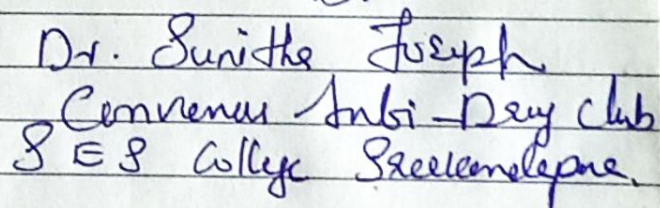 Dr. Sunitha Joseph
Convenor Anti-Drug Club
S E S College Sreekandapuram.